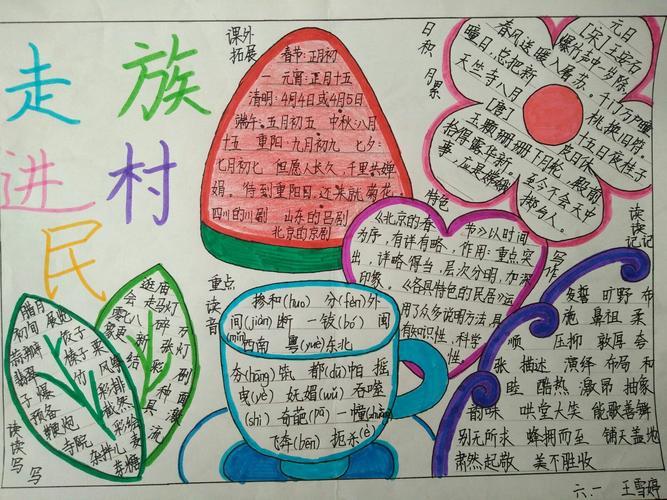 走进民族村
课外
拓展
春节:正月初
一 元宵:正月十五
清明:4月4日或4月5日
端午:五月初五 中秋:八月
十五 重阳:九月初九 七夕:
七月初七 但愿人长久,千里共婵
娟。 待到重阳日,还来就菊花。
四川的川剧 山东的吕剧
北京的京剧
日积月累
元日
[宋]王安石
爆竹声中一岁除,
春风送暖入屠苏。
千门万户曈
曈日,总把新
桃换旧符。
天竺寺八月
十五日夜桂子
[唐]皮日休
玉颗珊珊下月轮,殿前
拾得露华新。
至今不会天中
事,应是嫦娥
掷与人。
特色
《北京的春
节》以时间
为序,有详有略,作用:重点突
出,详略得当,层次分明,加深
印象。《各具特色的民居》运
用了众多说明方法,具
有知识性,科学
性。
重点
读音
掺和(huo) 分(fèn)外
间(jiàn)断 一钹(bó) 闽
(mǐn)南 粤(yuè)东北
夯(hāng)筑
帕 摇
曳(yè) 妩媚(wǔ) 吞噬
(shì) 奇葩(pā) 一幢(zhuàng)
飞奔(bēn) 扼水(è)
读读写写
腊月
初旬
蒜
饺子
翡翠
栗
爆
鞭炮
风筝
预备
彩排
寺院
截然
彩绘
杂拌儿
麦
芽糖
逛庙
会
走马灯
万
灯
张
结
彩
刷
面
具
种
激
流
读读记记
写作
发誓 旷野 布
施 鼻祖 柔
顺 压抑 敦厚 夸
张 描述 演绎 布局 和
睦 酷热 激昂 抽象
韵味 哄堂大笑 能歌善舞
别无所求 蜂拥而至 铺天盖地
肃然起敬 美不胜收
六.一 王雪婷